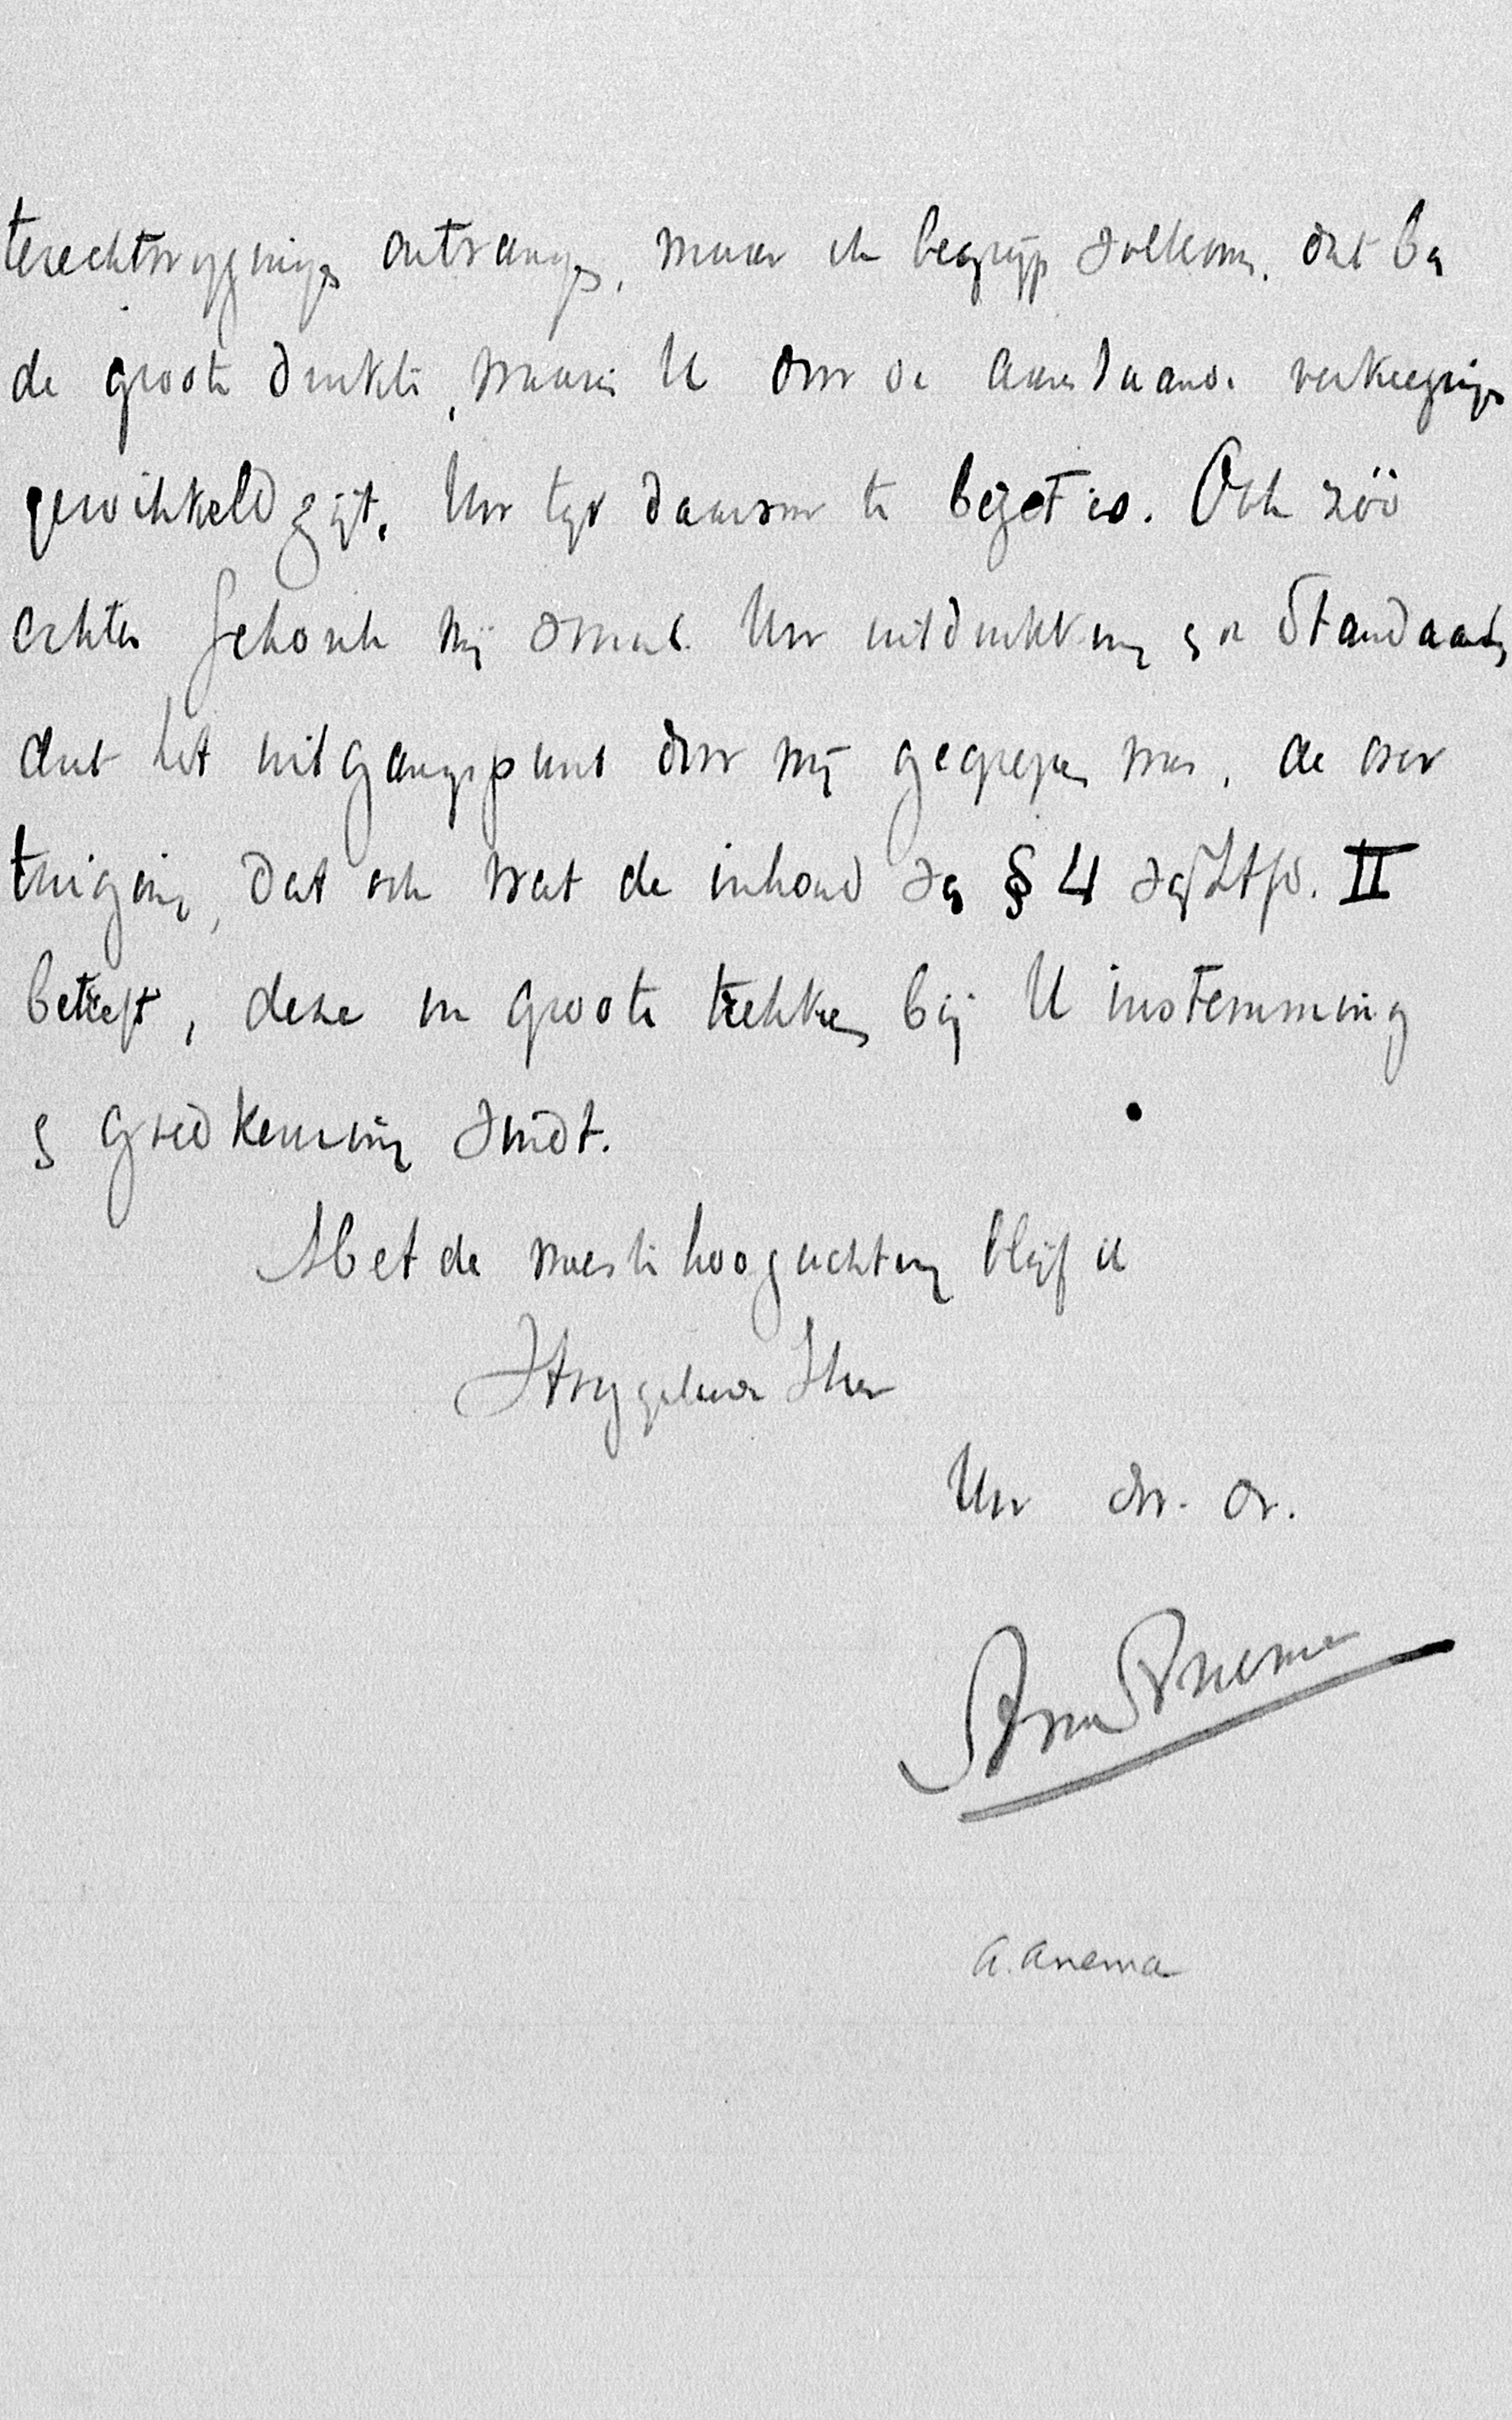 terechtwijzingen ontvangen, maar ik begrijp volkomen, dat bij
de groote drukte, waarin U door de aanstaande verkiezingen
gewikkeld zijt, Uw tijd daarvoor te bezet is. Ook zóó
echter schonk mij vooral Uw uitdrukking in de Standaard,
dat het uitgangspunt door mij gegrepen was, de over
tuiging, dat ook wat de inhoud van § 4 van Hfst. II
betreft, deze in groote trekken bij U instemming
en goedkeuring vindt.
Met de meeste hoogachting blijf ik
Hooggeleerde Heer
Uw dw. dr.
Anema
A. Anema